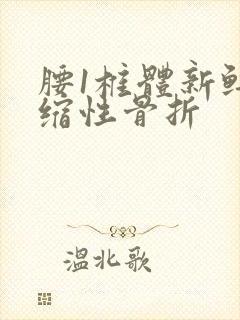 腰1椎體新鲜
缩性骨折
温北歌